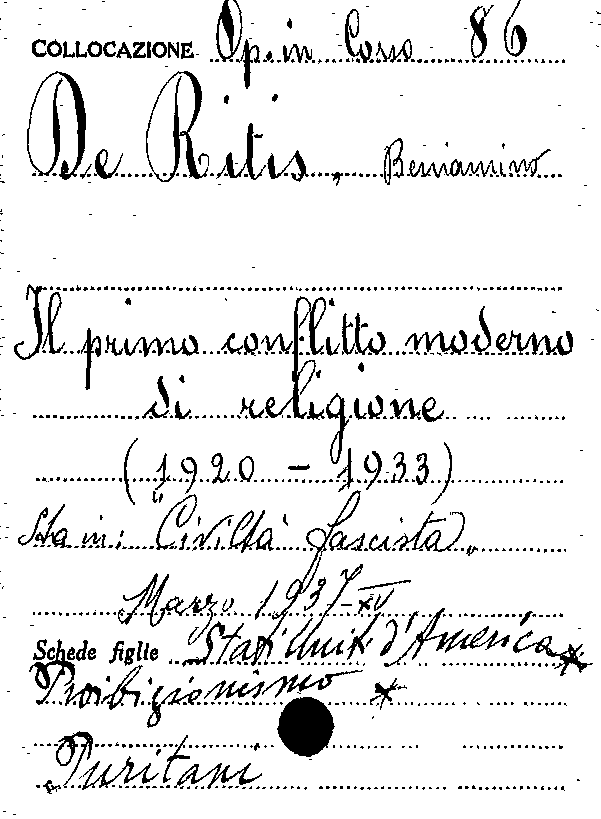 COLLOCAZIONE Op. in Corso 86
De Ritis, Beniamino
Il primo conflitto moderno
di religione
(1920 - 1933)
Sta in: "Civiltà fascista"
Marzo 1937-XV
Schede figlie Stati Uniti d'America *
Proibizionismo *
Puritani